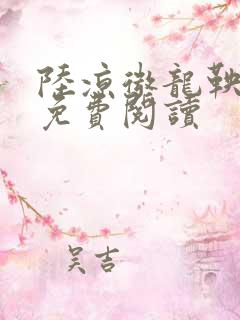 陸涼徹龍鞅
免費閱讀
吴吉